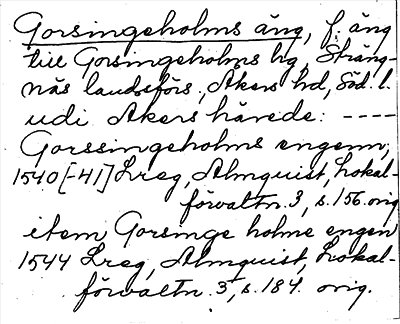 Gorsingeholms äng, f. äng
till Gorsingeholms hg, Sträng-
näs landsförs., Åkers hd, Söd. l.
udi Akers härede: ----
Gorssingeholms engenn,
1540[-41] Lreg, Almquist, Lokal-
förvaltn. 3, s. 156. orig
item Gorsinge holme engen
1544 Lreg, Almquist, Lokal-
förvaltn. 3, s. 184. orig.